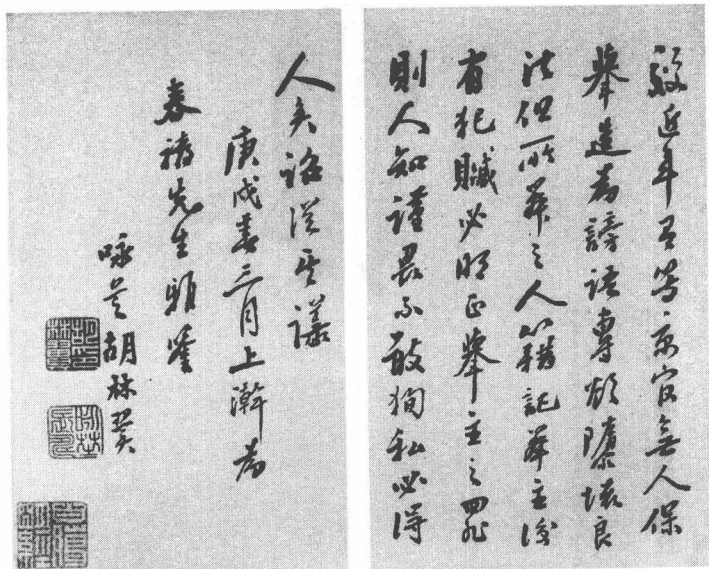 近年有等京官無人保
舉造為謗語專欲隳壞良
法但所舉之人籍記舉主後
有犯贓必明正舉主之罪
則人知謹畏不敢徇私必得
人矣詔從其議
庚戌春三月上澣為
春先生雅鑒
咏芝胡林翼